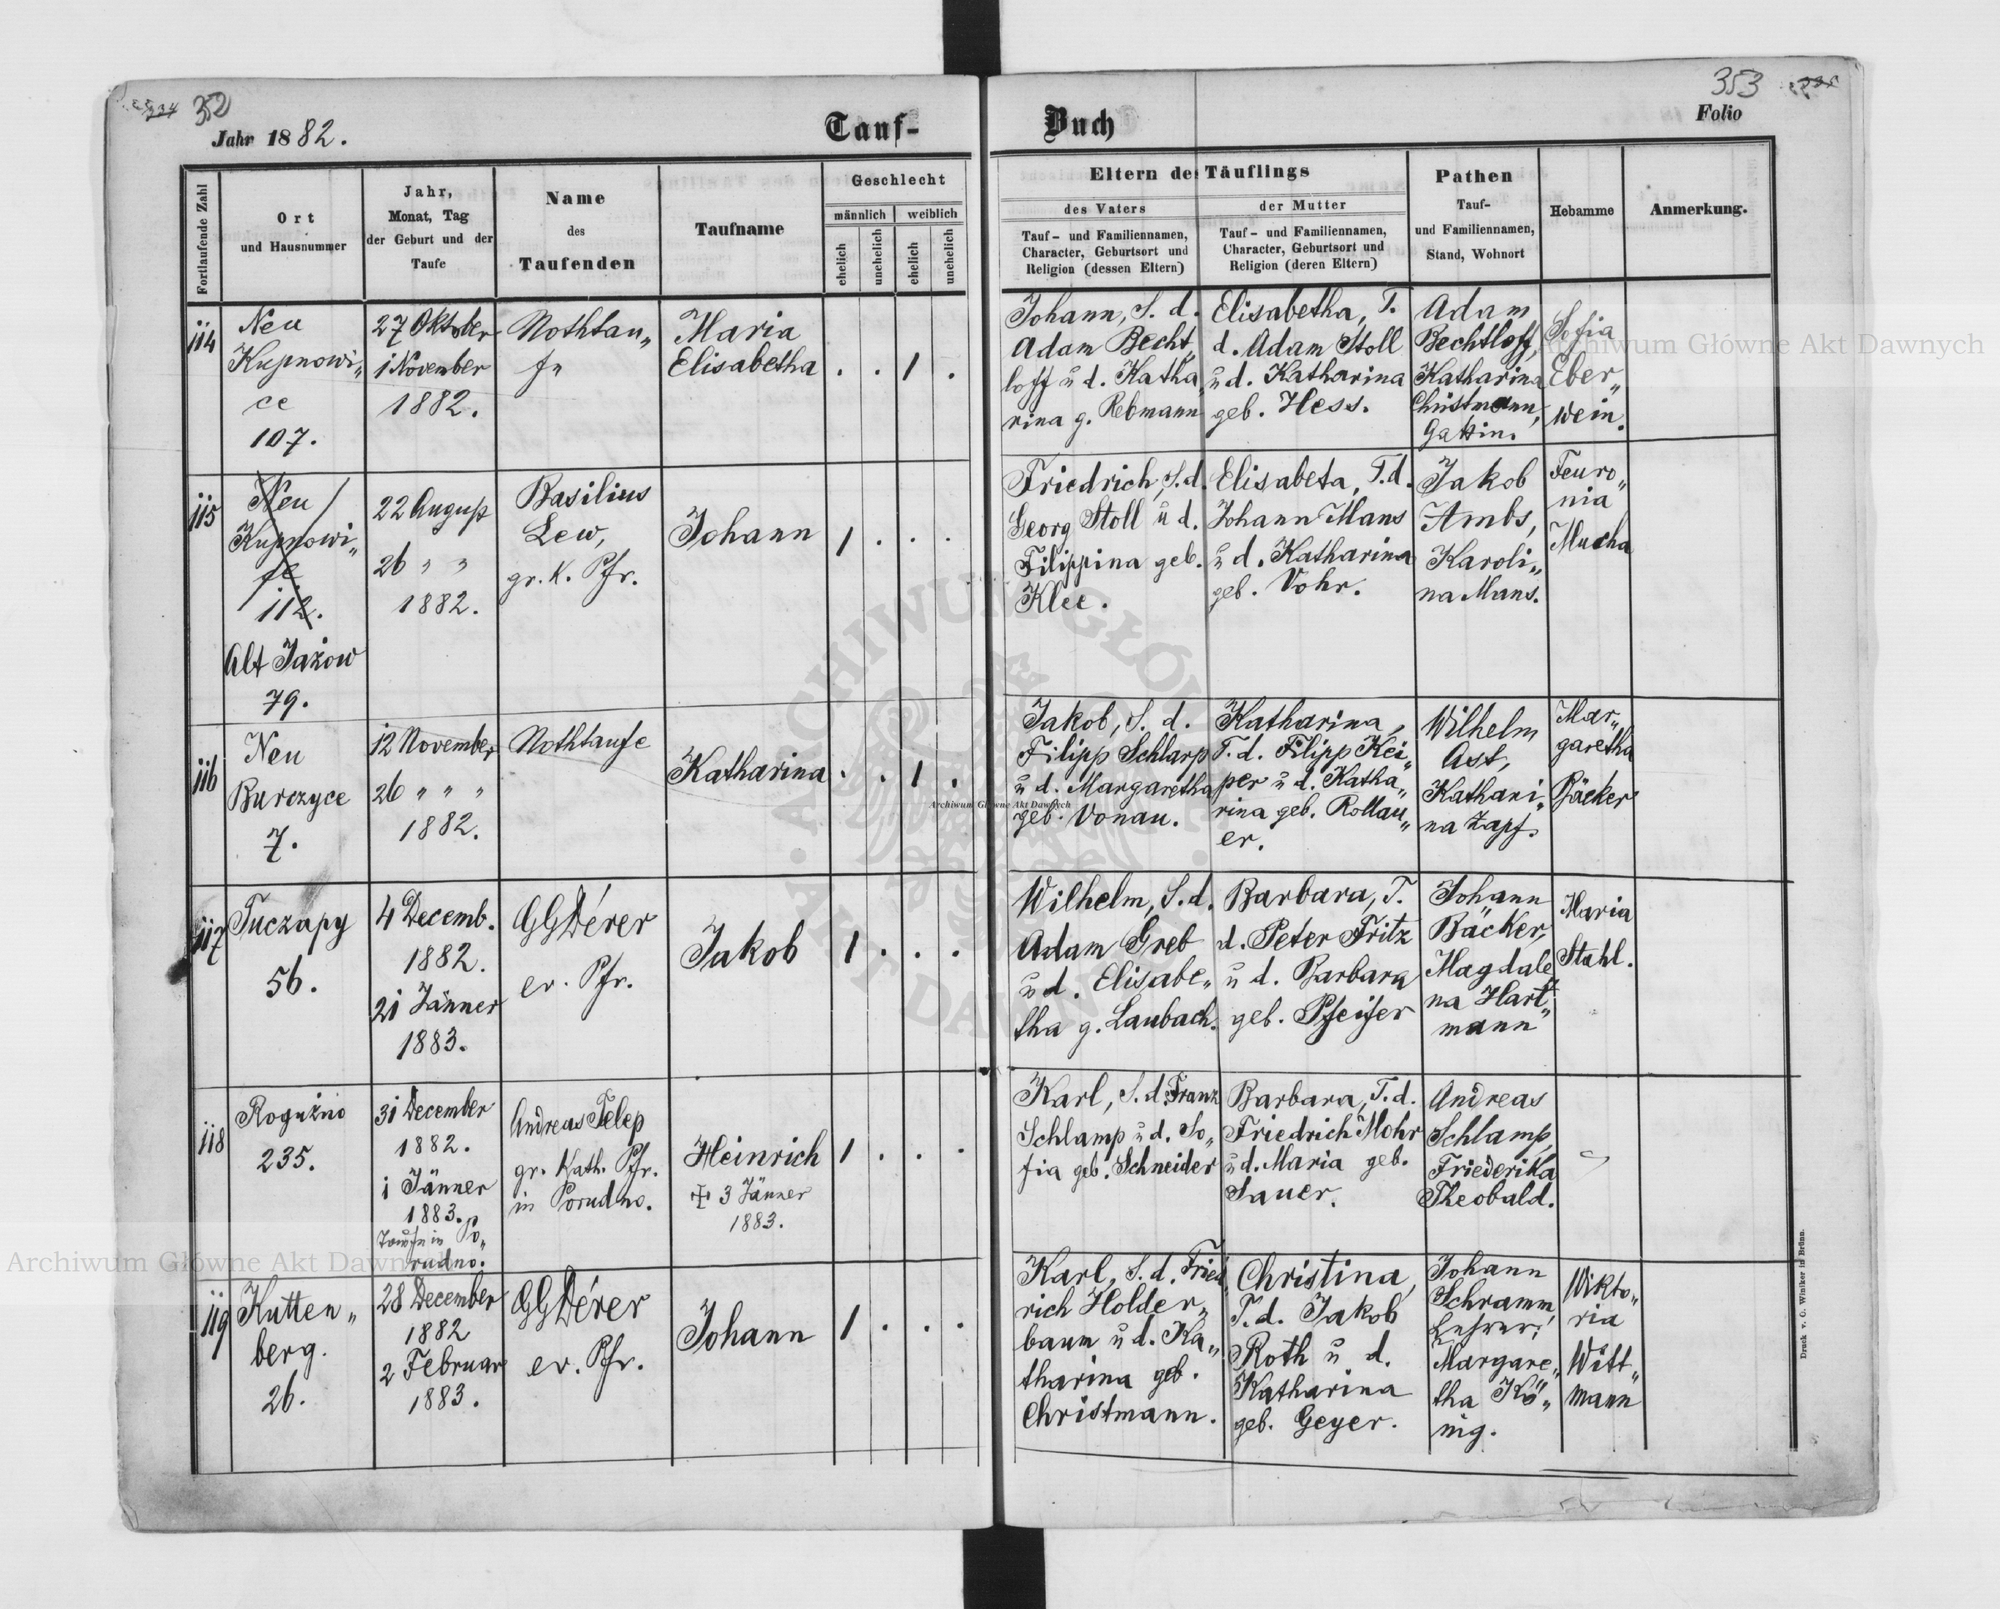 352
353
Jahr 1882.
Tauf-
Buch
Folio
Fortlaufende Zahl
Ort
und Hausnummer
Jahr,
Monat, Tag
der Geburt und der
Taufe
Name
des
Taufenden
Taufname
Geschlecht
männlich
weiblich
ehelich
unehelich
ehelich
unehelich
Eltern des Täuflings
des Vaters
Tauf- und Familiennamen,
Character, Geburtsort und
Religion (dessen Eltern)
der Mutter
Tauf- und Familiennamen,
Character, Geburtsort und
Religion (deren Eltern)
Pathen
Tauf-
und Familiennamen,
Stand, Wohnort
Hebamme
Anmerkung.
114
Neu
Kupnowi„
ce
107.
27 Oktober
1 November
1882.
Nothtau„
fe
Maria
Elisabetha
. . 1 .
Johann, S. d.
Adam Becht„
loff u d. Katha„
rina g. Rebmann
Elisabetha, T.
d. Adam Stoll
u d. Katharina
geb. Hess.
Adam
Bechtloff,
Katharina
Christmann,
Gattin.
Sofia
Eber„
wein.
115
Neu
Kupnowi„
ce
112.
Alt Jażow
79.
22 August
26 „ „
1882.
Basilius
Lew,
gr. K. Pfr.
Johann
1 . . .
Friedrich, S. d.
Georg Stoll u d.
Filippina geb.
Klee.
Elisabeta, T. d.
Johann Mans
u d. Katharina
geb. Vohr.
Jakob
Ambs,
Karoli„
na Mans.
Feuro„
nia
Mucha
116
Neu
Burczyce
7.
12 November
26 „ „ „
1882.
Nothtaufe
Katharina
. . 1 .
Jakob, S. d.
Filipp Schlarp
u d. Margaretha
geb. Vonau.
Katharina,
T. d. Filipp Kei„
per u d. Katha„
rina geb. Rollau„
er.
Wilhelm
Ast,
Kathari„
na Zapf.
Mar„
garetha
Bäcker
117
Tuczapy
56.
4 Decemb.
1882.
21 Jänner
1883.
GGDérer
ev. Pfr.
Jakob
1 . . .
Wilhelm, S. d.
Adam Greb
u d. Elisabe„
tha g. Laubach.
Barbara, T.
d. Peter Fritz
u d. Barbara
geb. Pfeifer
Johann
Bäcker,
Magdale„
na Hart„
mann
Maria
Stahl.
118
Rogużno
235.
31 December
1882.
1 Jänner
1883.
Taufe in Po„
rudno.
Andreas Telep
gr. Kath. Pfr.
in Porudno.
Heinrich
✝ 3 Jänner
1883.
1 . . .
Karl, S. d. Franz
Schlamp u d. So„
fia geb. Schneider
Barbara, T. d.
Friedrich Mohr
u d. Maria geb.
Sauer.
Andreas
Schlamp,
Friederika
Theobald.
119
Kutten„
berg.
26.
28 December
1882
2 Februar
1883.
GGDérer
ev. Pfr.
Johann
1 . . .
Karl, S. d. Fried„
rich Holder„
baum u d. Ka„
tharina geb.
Christmann.
Christina,
T. d. Jakob
Roth u d.
Katharina
geb. Geyer.
Johann
Schramm,
Lehrer,
Margare„
tha Kö„
nig.
Wikto„
ria
Witt„
mann
Druck v. G. Winiker in Brünn.
Archiwum Główne Akt Dawnych
Archiwum Główne Akt Dawnych
Archiwum Główne Akt Dawnych
ARCHIWUM GŁÓWNE AKT DAWNYCH